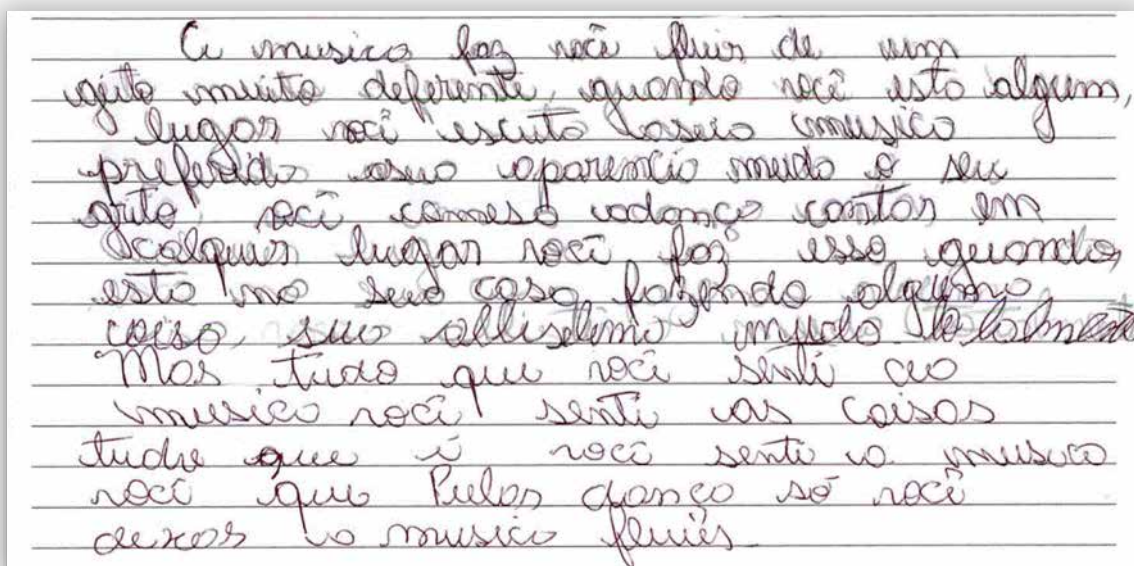 A musica faz você fluir de um
geito muito deferente, quando você esta algum,
lugar você escuta a sua musica
preferida asua aparencia muda o seu
geito você comesa adança cantar em
calquer lugar você faz isso quando,
esta na sua casa fazendo alguma
coisa, sua muda totalmente
Mas tudo que você senti ao
musica você senti as coisas
tudu que é você senti a musica
você que Pular dança só você
dexar a musica fluir